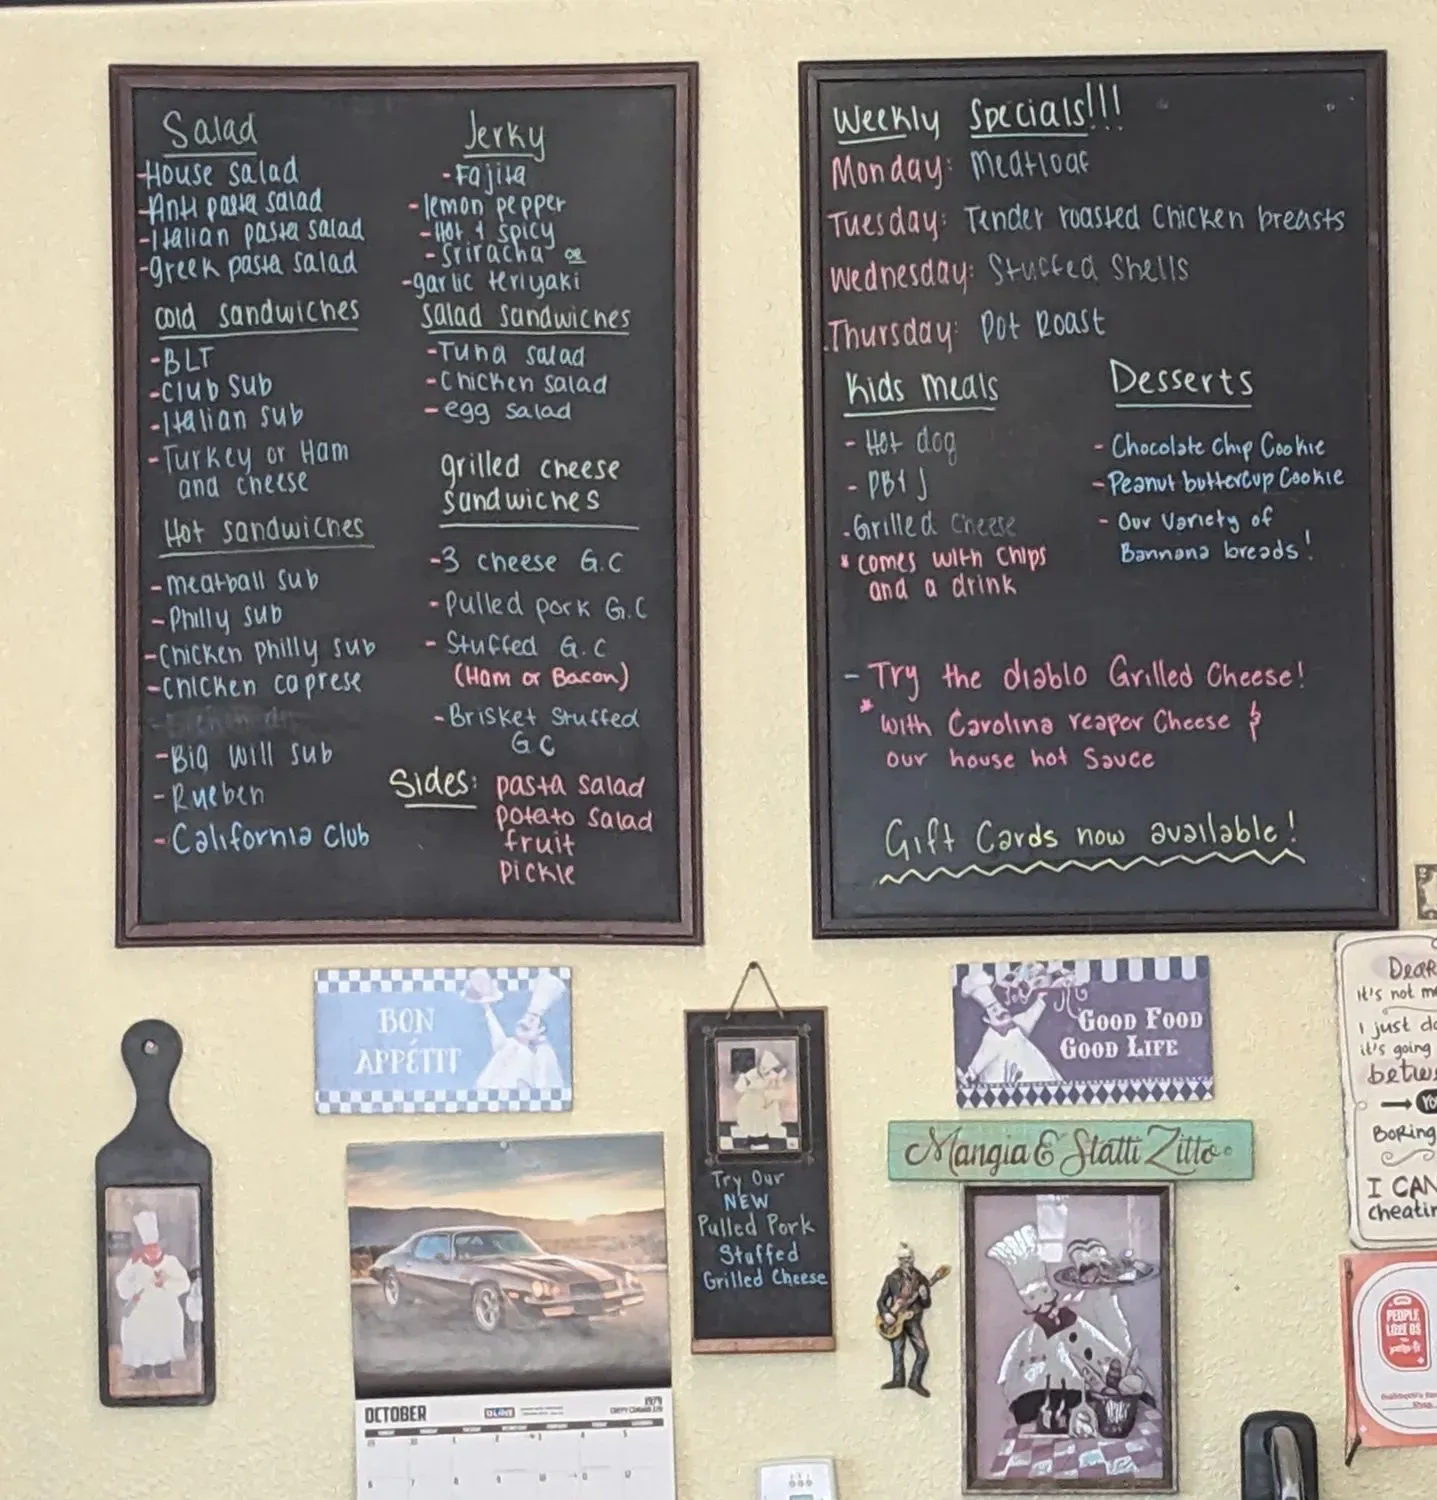 Salad
-House salad
-Anti pasta salad
-Italian pasta salad
-greek pasta salad
cold sandwiches
-BLT
-Club Sub
-Italian sub
-Turkey or Ham
and cheese
Hot sandwiches
-meatball sub
-Philly sub
-Chicken philly sub
-Chicken caprese
-Big Will sub
-Rueben
-California Club
Jerky
-Fajita
-lemon pepper
-Hot & spicy
-Sriracha
-garlic teriyaki
salad sandwiches
-Tuna salad
-Chicken salad
-egg salad
grilled cheese
sandwiches
-3 cheese G.C
-Pulled pork G.C
-Stuffed G.C
(Ham or Bacon)
-Brisket Stuffed
G C
Sides: pasta salad
potato salad
fruit
pickle
Weekly Specials!!!
Monday: Meatloaf
Tuesday: Tender roasted Chicken breasts
Wednesday: Stuffed Shells
Thursday: Pot Roast
Kids meals
- Hot dog
- PB & J
-Grilled Cheese
*comes with chips
and a drink
Desserts
- Chocolate Chip Cookie
-Peanut buttercup Cookie
- Our Variety of
Bannana breads!
- Try the diablo Grilled Cheese!
*with Carolina reaper Cheese &
our house hot Sauce
Gift Cards now available!
BON
APPÉTIT
GOOD FOOD
GOOD LIFE
Try Our
NEW
Pulled Pork
Stuffed
Grilled Cheese
Mangia & Statti Zitto
Dear
it's not m
I just do
it's going
betwe
→ YO
BORING
I CAN
cheatin
PEOPLE
LOVE US
OCTOBER
1979